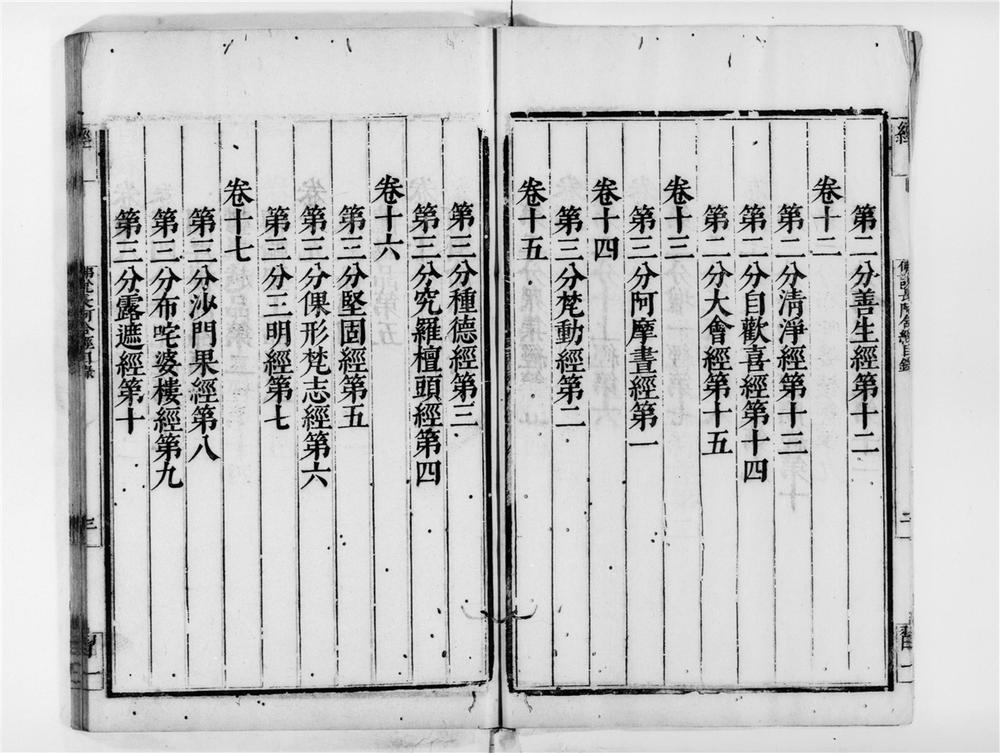 第二分善生經第十二
卷十二
第二分清淨經第十三
第二分自歡喜經第十四
第二分大會經第十五
卷十三
第三分阿摩晝經第一
卷十四
第三分梵動經第二
卷十五
第三分種德經第三
第三分究羅檀頭經第四
卷十六
第三分堅固經第五
第三分倮形梵志經第六
第三分三明經第七
卷十七
第三分沙門果經第八
第三分布咤婆樓經第九
第三分露遮經第十